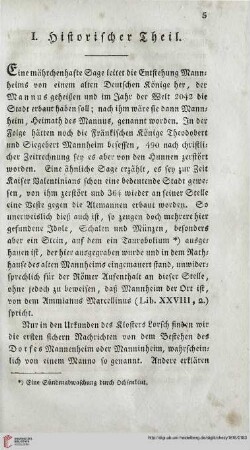 5
I. Historischer Theil.
Eine mährchenhafte Sage leitet die Entstehung Mann-
heims von einem alten Deutschen Könige her, der
Mannus geheißen und im Jahr der Welt 2043 die
Stadt erbaut haben soll; nach ihm wäre sie dann Mann-
heim, Heimath des Mannus, genannt worden. In der
Folge hätten noch die Fränkischen Könige Theodobert
und Siegebert Mannheim besessen, 490 nach christli-
cher Zeitrechnung sey es aber von den Hunnen zerstört
worden. Eine ähnliche Sage erzählt, es sey zur Zeit
Kaiser Valentinians schon eine bedeutende Stadt gewe-
sen, von ihm zerstört und 364 wieder an seiner Stelle
eine Veste gegen die Alemannen erbaut worden. So
unerweislich dieß auch ist, so zeugen doch mehrere hier
gefundene Idole, Schalen und Münzen, besonders
aber ein Stein, auf dem ein Taurobolium *) ausge-
hauen ist, der hier ausgegraben wurde und in dem Rath-
hause des alten Mannheims eingemauert stand, unwider-
sprechlich für der Römer Aufenthalt an dieser Stelle,
ohne jedoch zu beweisen, daß Mannheim der Ort ist,
von dem Ammianus Marcellinus (Lib. XXVIII, 2.)
spricht.
Nur in den Urkunden des Klosters Lorsch finden wir
die ersten sichern Nachrichten von dem Bestehen des
Dorfes Mannenheim oder Manninheim, wahrschein-
lich von einem Manno so genannt. Andere erklären
*) Eine Sündenabwaschung durch Ochsenblut.